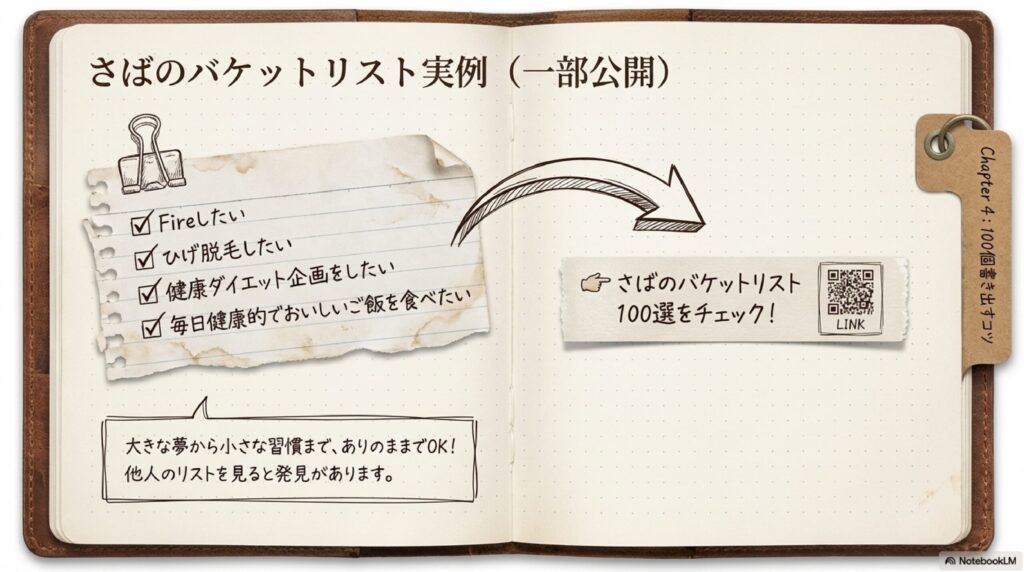 さばのバケットリスト実例（一部公開）
Fireしたい
ひげ脱毛したい
健康ダイエット企画をしたい
毎日健康的でおいしいご飯を食べたい
大きな夢から小さな習慣まで、ありのままでOK！
他人のリストを見ると発見があります。
さばのバケットリスト
100選をチェック！
LINK
Chapter 4：100個書き出すコツ
NotebookLM